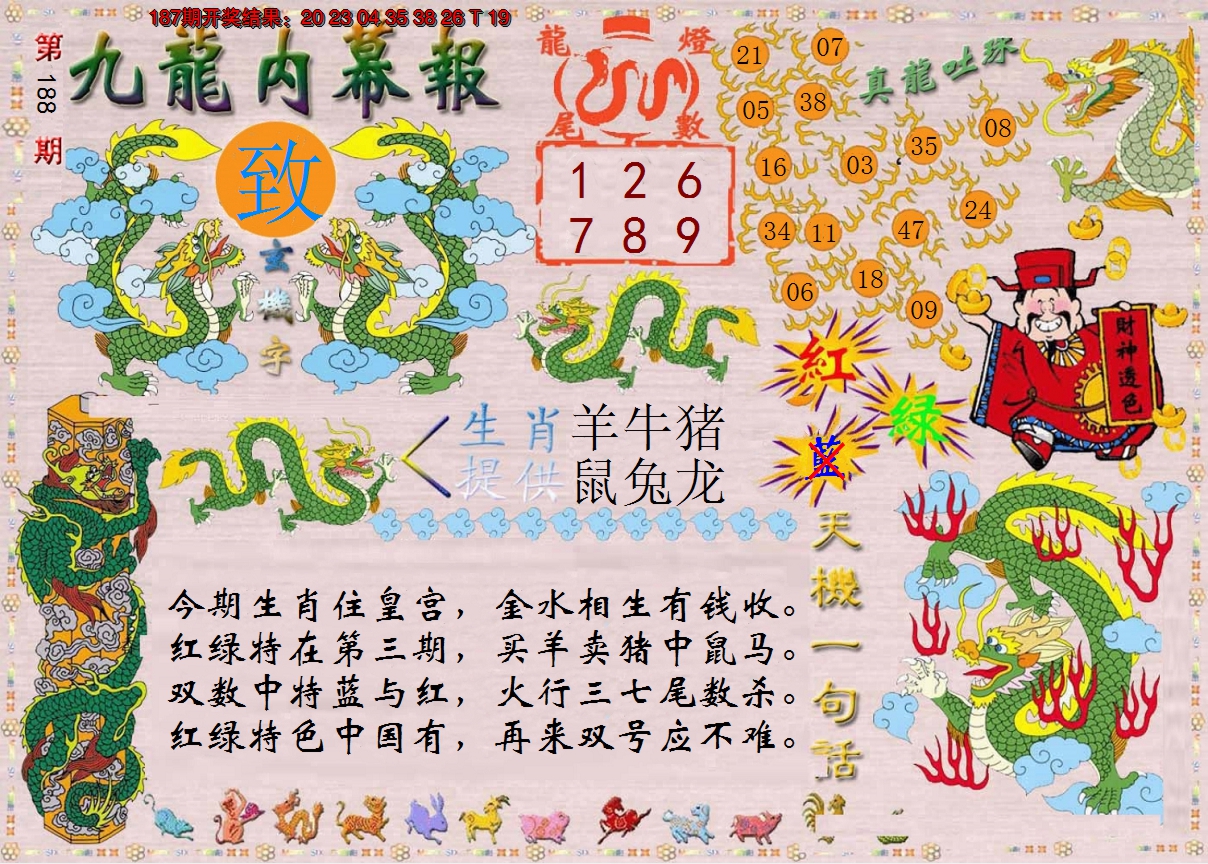 187期开奖结果：20 23 04 35 38 26 T 19
第188期
九龍内幕報
致
玄機字
龍燈
尾數
1 2 6
7 8 9
真龍吐珠
21 07
05 38
35 08
16 03
24
34 11 47
18
06 09
財神透色
紅
绿
藍
生肖 羊牛猪
提供 鼠兔龙
天機一句話
今期生肖住皇宫，金水相生有钱收。
红绿特在第三期，买羊卖猪中鼠马。
双数中特蓝与红，火行三七尾数杀。
红绿特色中国有，再来双号应不难。